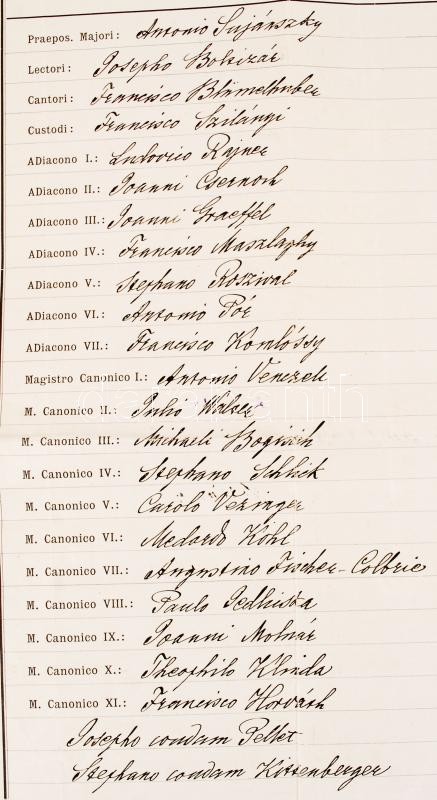 Praepos. Majori: Antonio Sujánszky
Lectori: Josepho Boltizár
Cantori: Francisco Blümelhuber
Custodi: Francisco Szilányi
ADiacono I.: Ludovico Rajner
ADiacono II.: Joanni Csernoch
ADiacono III.: Joanni Graeffel
ADiacono IV.: Francisco Maszlaghy
ADiacono V.: Stephano Roszival
ADiacono VI.: Antonio Pór
ADiacono VII.: Francisco Komlóssy
Magistro Canonico I.: Antonio Venczell
M. Canonico II.: Julio Walter
M. Canonico III.: Michaeli Bogisich
M. Canonico IV.: Stephano Schlick
M. Canonico V.: Carolo Vezinger
M. Canonico VI.: Medardo Kohl
M. Canonico VII.: Augustino Fischer-Colbrie
M. Canonico VIII.: Paulo Jedlicska
M. Canonico IX.: Joanni Molnár
M. Canonico X.: Theophilo Klinda
M. Canonico XI.: Francisco Horváth
Josepho condam Pellet
Stephano condam Kissenberger